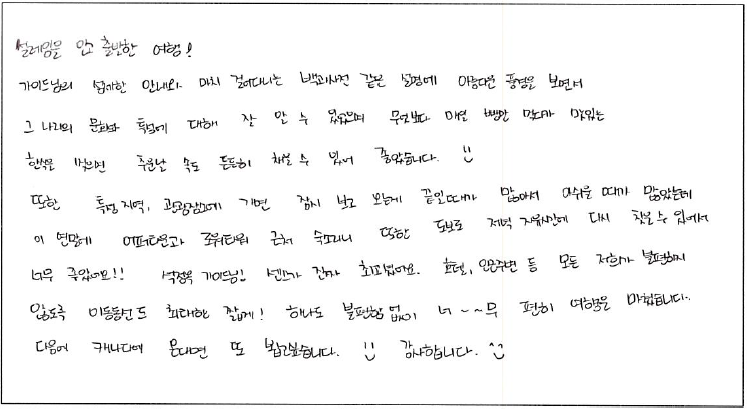 설레임을 안고 출발한 여행!
가이드님의 섬세한 안내와 마치 걸어다니는 백과사전 같은 설명에 아름다운 풍경을 보면서
그 나라의 문화와 특성에 대해 잘 알 수 있었으며 무엇보다 매일 빵만 먹다가 맛있는
한식을 먹으면 추운날 속도 든든히 채울 수 있어 좋았습니다. :)
또한 특정 지역, 관광장소에 가면 잠시 보고 오는게 끝일때가 많아서 아쉬운 때가 많았는데
이 연말에 어퍼타운과 로워타워 근처 숙소라니 또한 도보로 저녁 자유시간에 다시 찾을 수 있어서
너무 좋았어요!! 가이드님! 센스가 진짜 최고십니다. 호텔, 인원주변 등 모든 저희가 불편하지
않도록 이동동선도 최대한 짧게! 하나도 불편함 없이 너~~무 편히 여행을 마칩니다.
다음에 캐나다에 온다면 또 뵙고싶습니다. :) 감사합니다. ^^